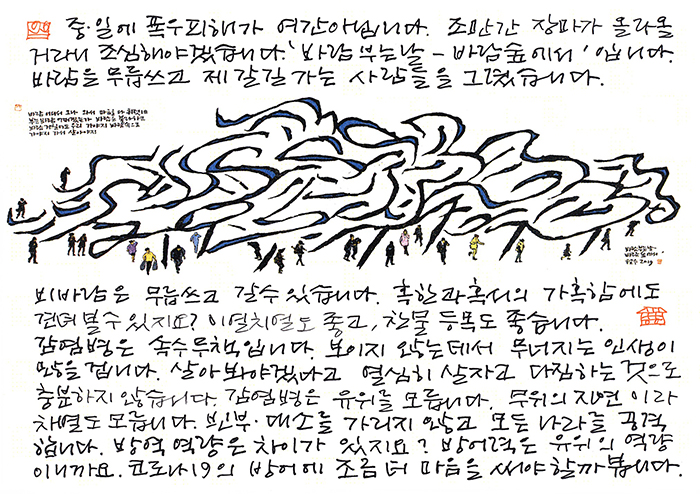 중·일에 폭우피해가 여간아닙니다. 조만간 장마가 올라올
거라니 조심해야겠습니다. '바람부는날 - 바람숲에서' 입니다.
바람을 무릅쓰고 제 갈길 가는 사람들을 그렸습니다.
비바람은 무릅쓰고 갈수있습니다. 혹한과혹서의 가혹함에도
견뎌볼수있지요? 이열치열도 좋고, 찬물 등목도 좋습니다.
감염병은 속수무책입니다. 보이지 않는데서 무너지는 인생이
많을겁니다. 살아봐야겠다고 열심히 살자고 다짐하는 것으로
충분하지 않습니다. 감염병은 유위를 모릅니다. 무위의 자연이라
차별도 모릅니다. 빈부·대소를 가리지 않고 모든 나라를 공격
합니다. 방역 역량은 차이가 있지요? 방어력은 유위의 역량
이니까요. 코로나19의 방어에 조금 더 마음을 써야 할까 봅니다.